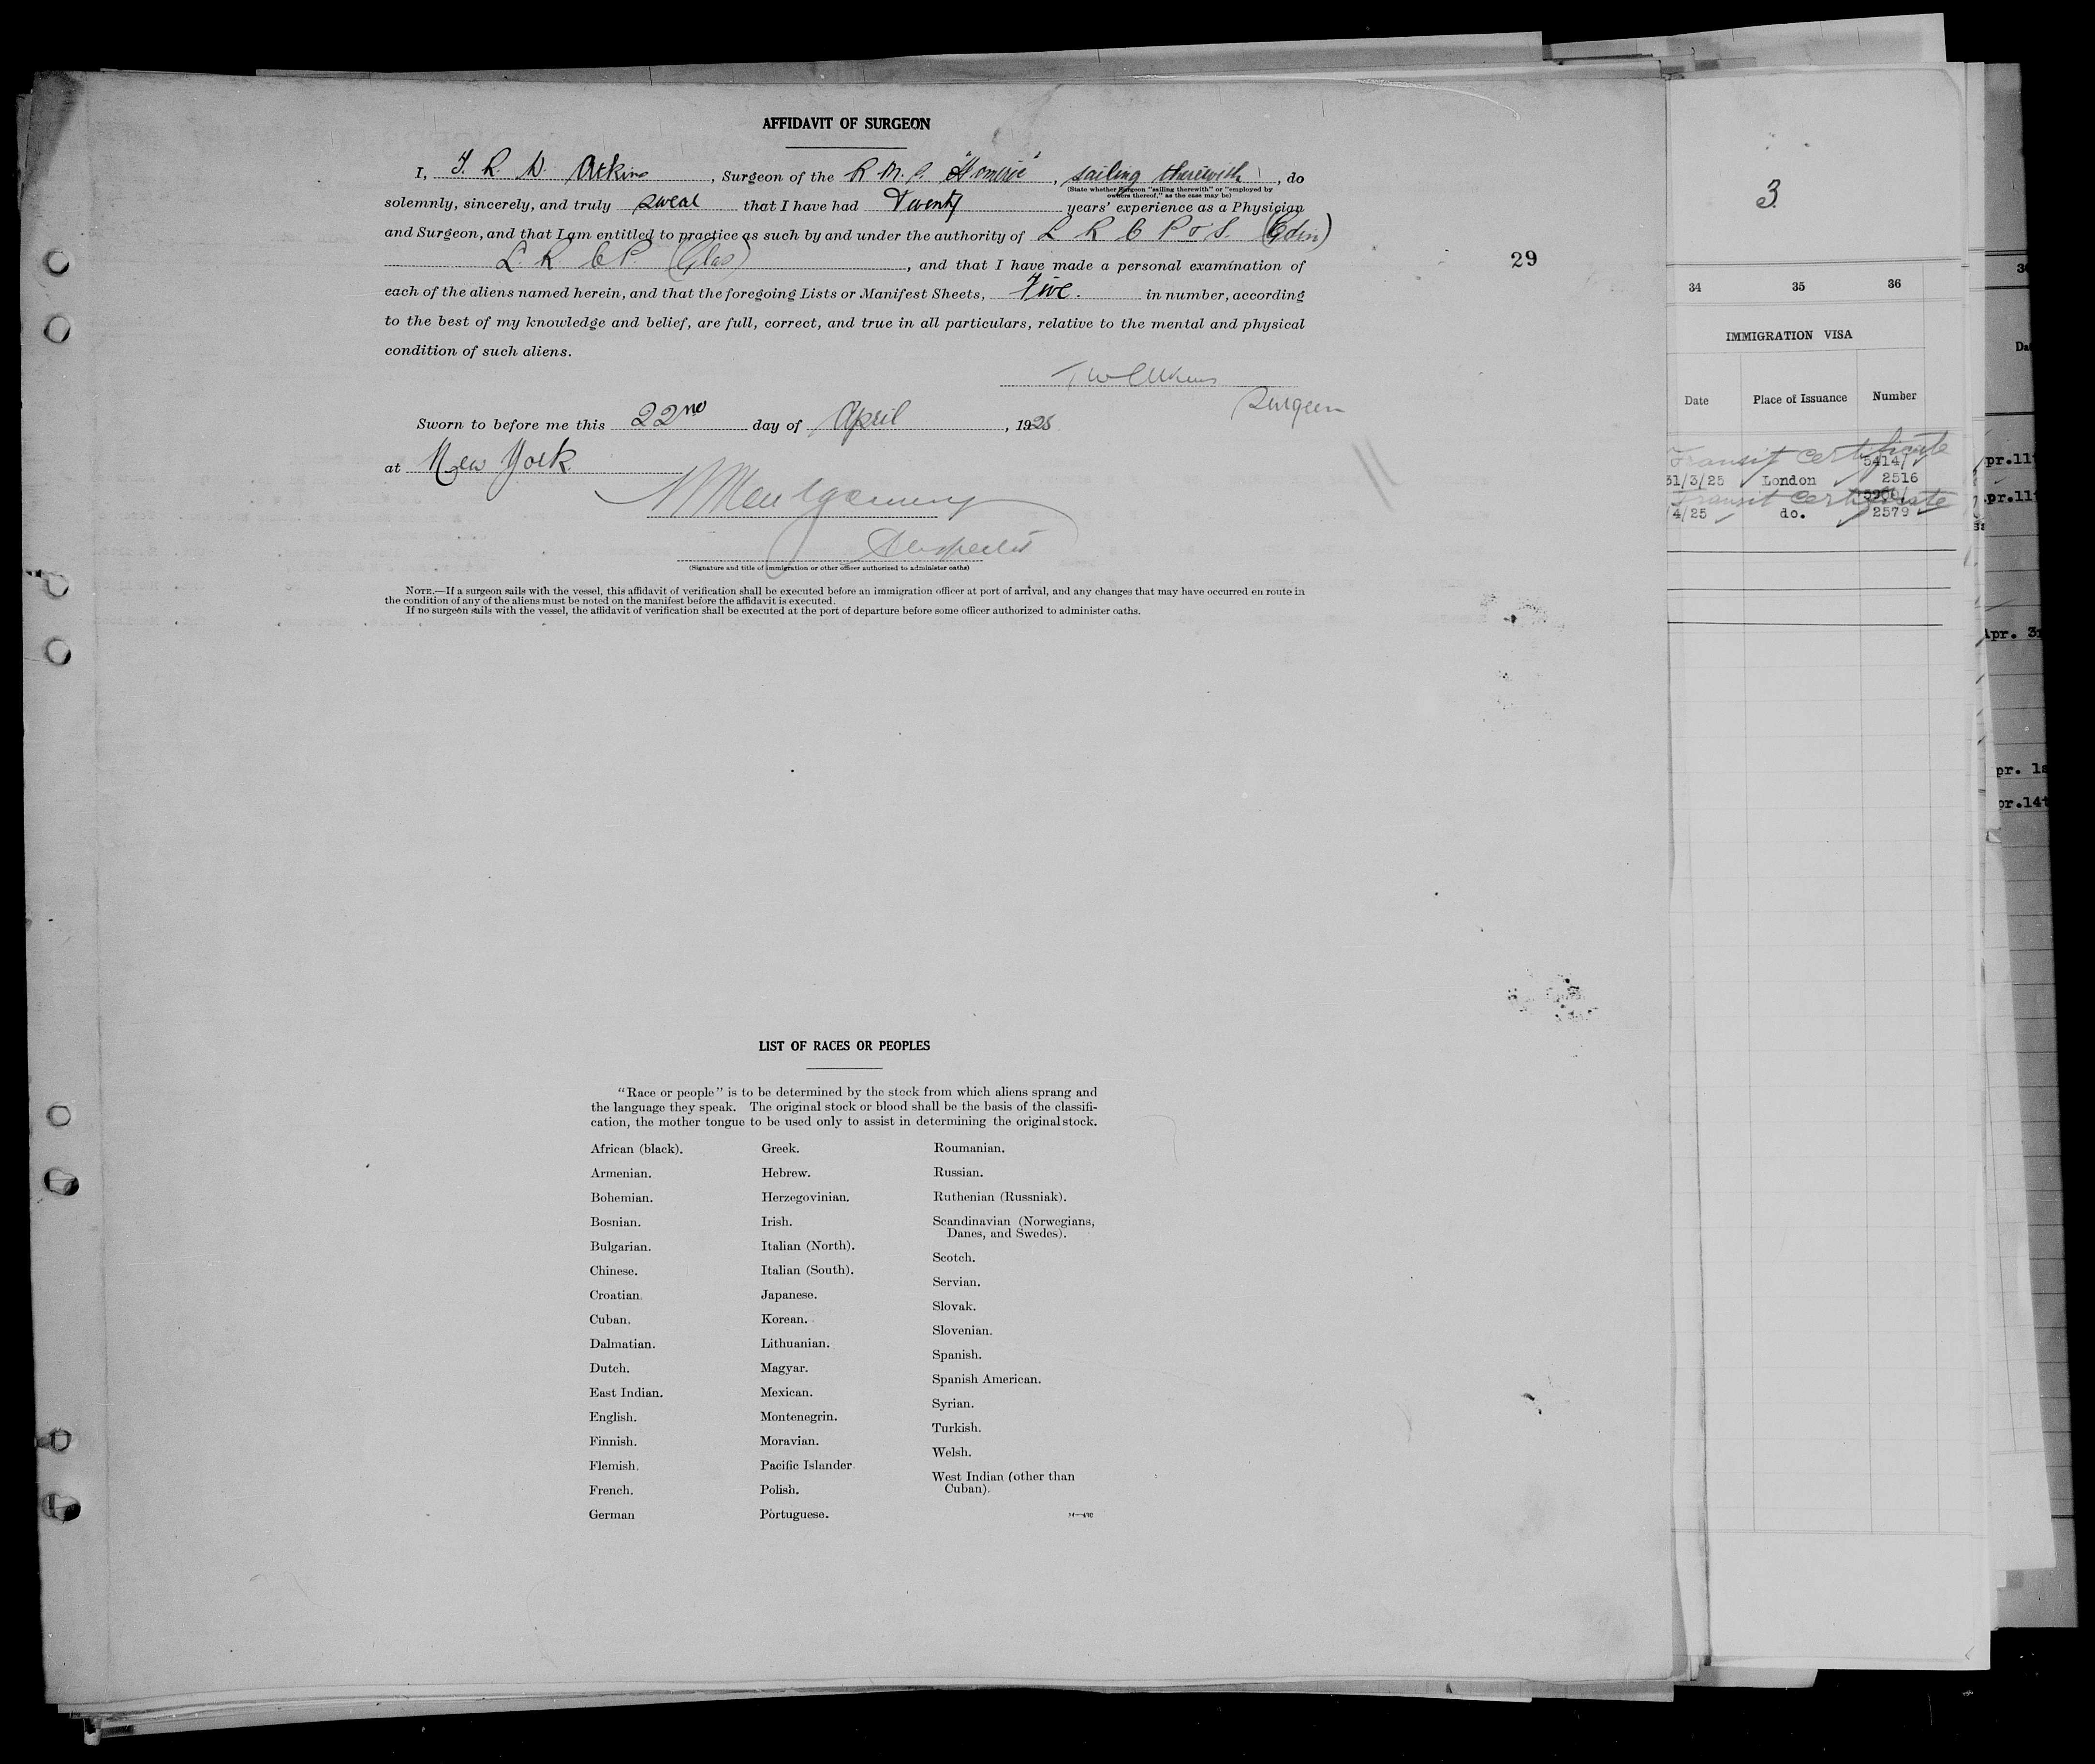 AFFIDAVIT OF SURGEON
I, T. R. W. Atkins, Surgeon of the R.M.S. "Homeric", sailing therewith, do
(State whether Surgeon "sailing therewith" or "employed by
owners thereof," as the case may be)
solemnly, sincerely, and truly swear that I have had Twenty years' experience as a Physician
and Surgeon, and that I am entitled to practice as such by and under the authority of L R C P & S. (Edin)
L. R. C P. (Glas), and that I have made a personal examination of
each of the aliens named herein, and that the foregoing Lists or Manifest Sheets, Five. in number, according
to the best of my knowledge and belief, are full, correct, and true in all particulars, relative to the mental and physical
condition of such aliens.
Surgeon
Sworn to before me this 22nd day of April, 1925
at New York
Montgomery
Inspector
(Signature and title of immigration or other officer authorized to administer oaths)
NOTE.—If a surgeon sails with the vessel, this affidavit of verification shall be executed before an immigration officer at port of arrival, and any changes that may have occurred en route in
the condition of any of the aliens must be noted on the manifest before the affidavit is executed.
If no surgeon sails with the vessel, the affidavit of verification shall be executed at the port of departure before some officer authorized to administer oaths.
29
LIST OF RACES OR PEOPLES
"Race or people" is to be determined by the stock from which aliens sprang and
the language they speak. The original stock or blood shall be the basis of the classifi-
cation, the mother tongue to be used only to assist in determining the original stock.
African (black).
Armenian.
Bohemian.
Bosnian.
Bulgarian.
Chinese.
Croatian.
Cuban.
Dalmatian.
Dutch.
East Indian.
English.
Finnish.
Flemish.
French.
German
Greek.
Hebrew.
Herzegovinian.
Irish.
Italian (North).
Italian (South).
Japanese.
Korean.
Lithuanian.
Magyar.
Mexican.
Montenegrin.
Moravian.
Pacific Islander.
Polish.
Portuguese.
Roumanian.
Russian.
Ruthenian (Russniak).
Scandinavian (Norwegians,
Danes, and Swedes).
Scotch.
Servian.
Slovak.
Slovenian.
Spanish.
Spanish American.
Syrian.
Turkish.
Welsh.
West Indian (other than
Cuban).
3
34 35 36
IMMIGRATION VISA
Date Place of Issuance Number
Transit Certificate
5414/
31/3/25 London 2516
Transit Certificate
4/25 do. 2579
pr.11
pr.11
Apr. 3r
pr. 1s
pr.14t